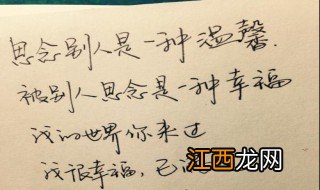 思念别人是一种温馨.
被别人思念是一种幸福
我的世界你来过
我很幸福,已
江西龙网